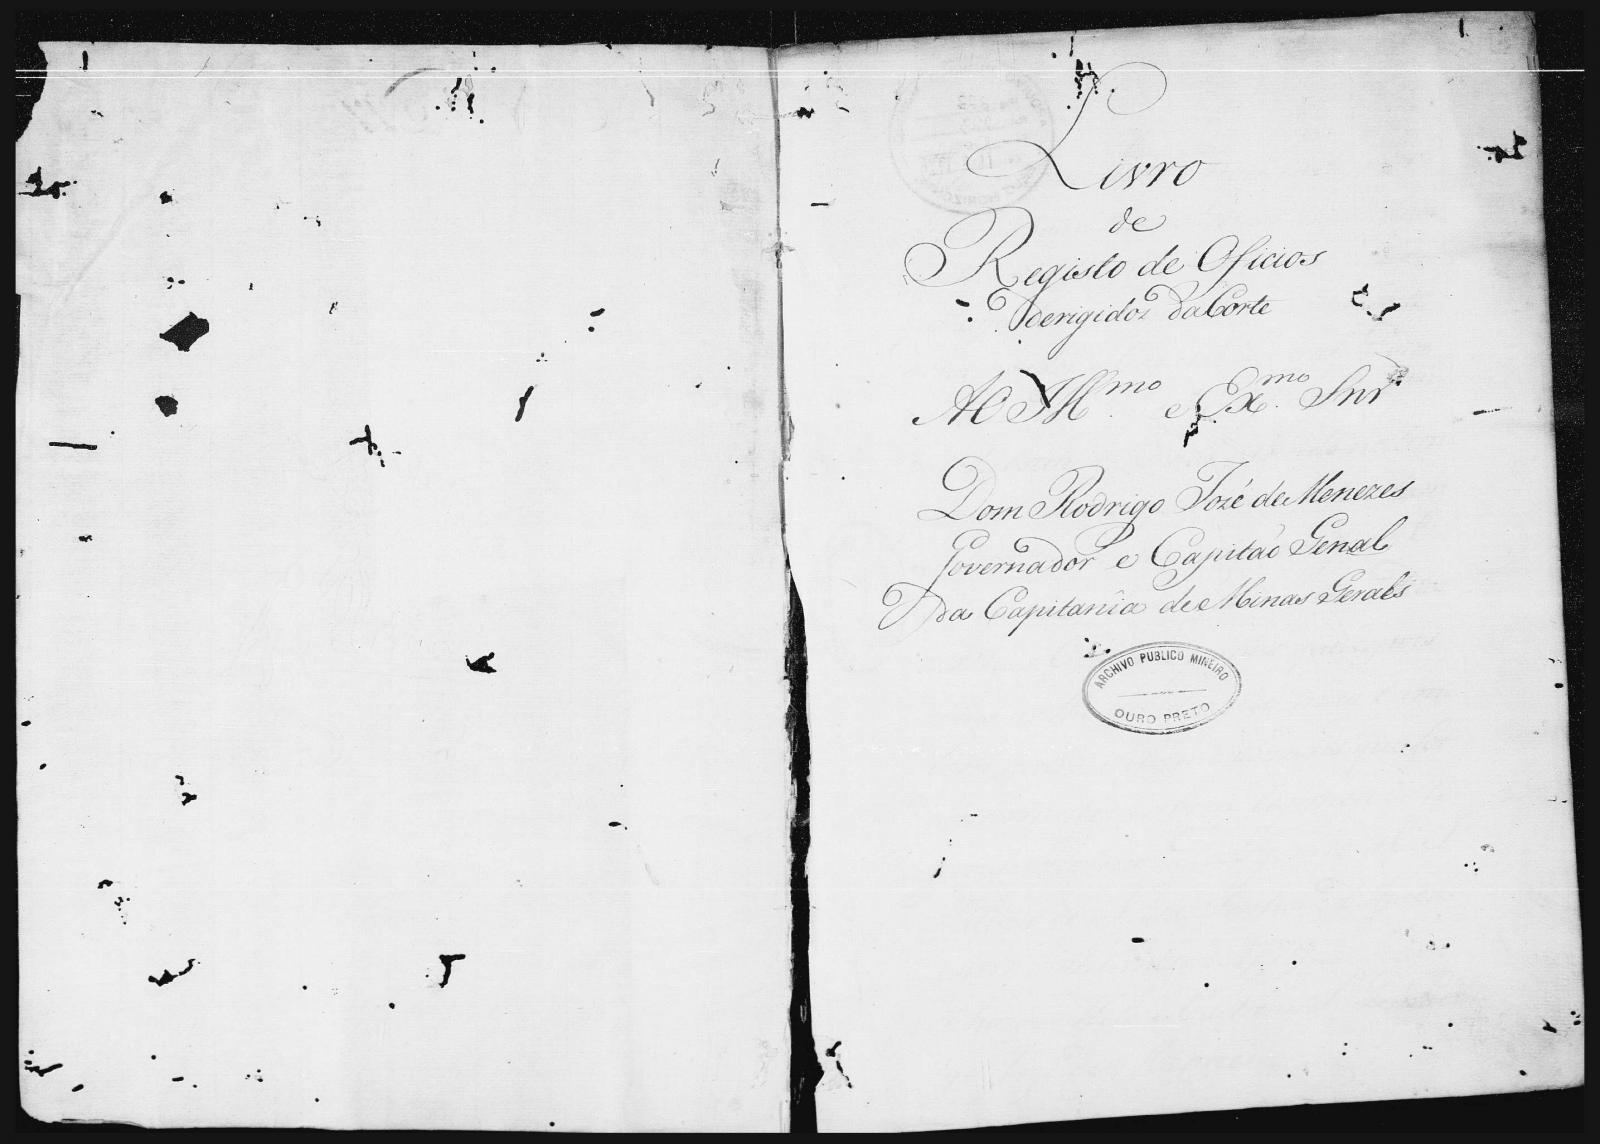 Livro
de
Registo de Oficios
derigidos da Corte
Ao Ill.mo e Ex.mo Snr
Dom Rodrigo Jozé de Menezes
Governador e Capitaõ Genal
da Capitanîa de Minas Geraes
ARCHIVO PUBLICO MINEIRO
OURO PRETO